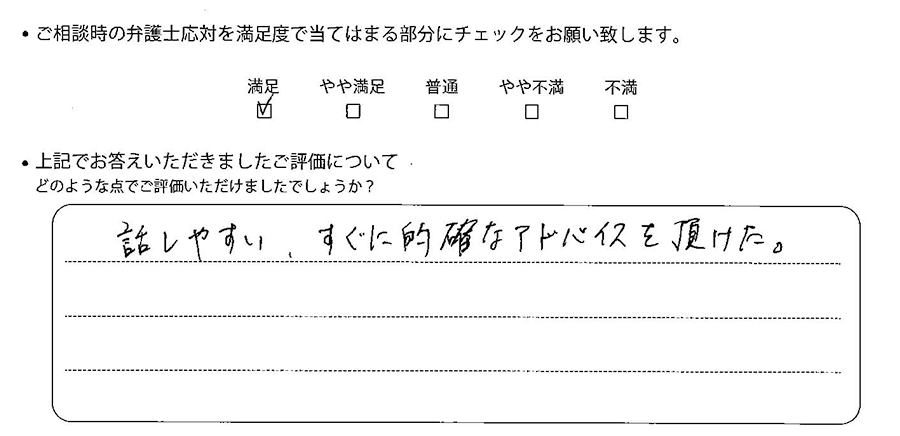 • ご相談時の弁護士応対を満足度で当てはまる部分にチェックをお願い致します。
満足 やや満足 普通 やや不満 不満
☑ ☐ ☐ ☐ ☐
• 上記でお答えいただきましたご評価について
どのような点でご評価いただけましたでしょうか？
話しやすい、すぐに的確なアドバイスを頂けた。